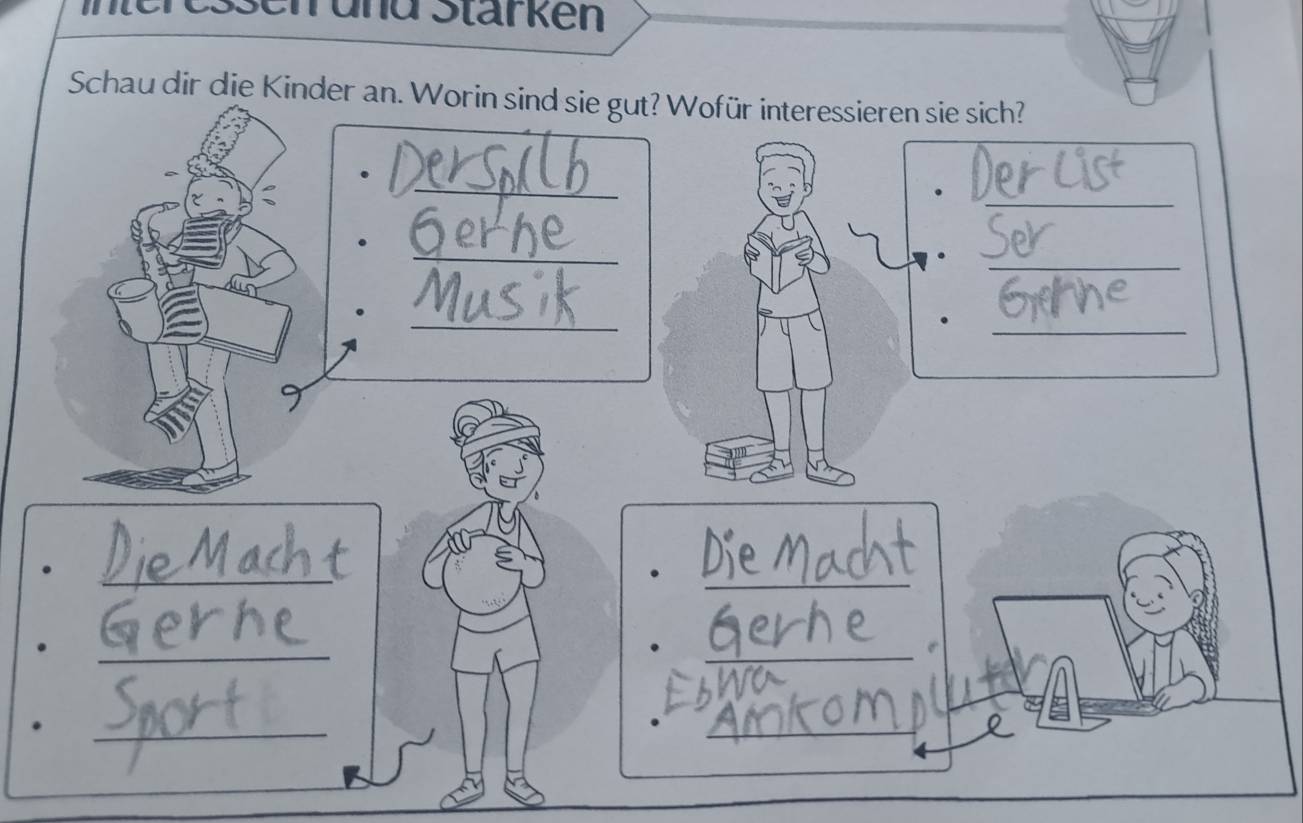 Interessen und Stärken
Schau dir die Kinder an. Worin sind sie gut? Wofür interessieren sie sich?
Der Spilb
Gerne
Musik
Der List
Ser
Gerne
Die Macht
Gerne
Sport
Die Macht
Gerne
Ebwa
Am Kompluter